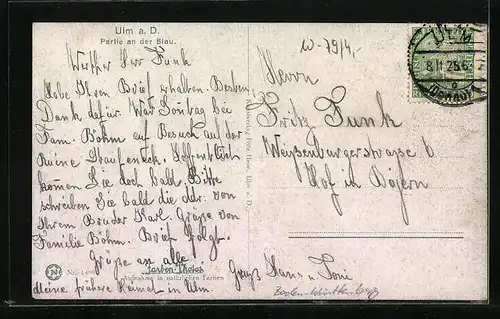 Ulm a. D.
Partie an der Blau.
Werther Herr Funk
Habe Ihren Brief erhalten. Besten
Dank dafür. War Sontag bei
Fam. Böhm auf Besuch auf der
Ruine Staufeneck. Hoffentlich
können Sie doch bald. Bitte
schreiben Sie bald die Adr. von
Ihrem Bruder Karl. Grüße von
Familie Böhm. Brief folgt.
Grüße an alle
Meine frühere Heimat in Ulm.
farben-Photos
Aufnahme in natürlichen Farben
W-79/4,-
ULM
8.11.25.6-7
(Donau)
Herrn
Fritz Funk
Weissenburgerstrasse 6
Hof in Bayern
Gruß Hans u. Toni
Baden-Württemberg